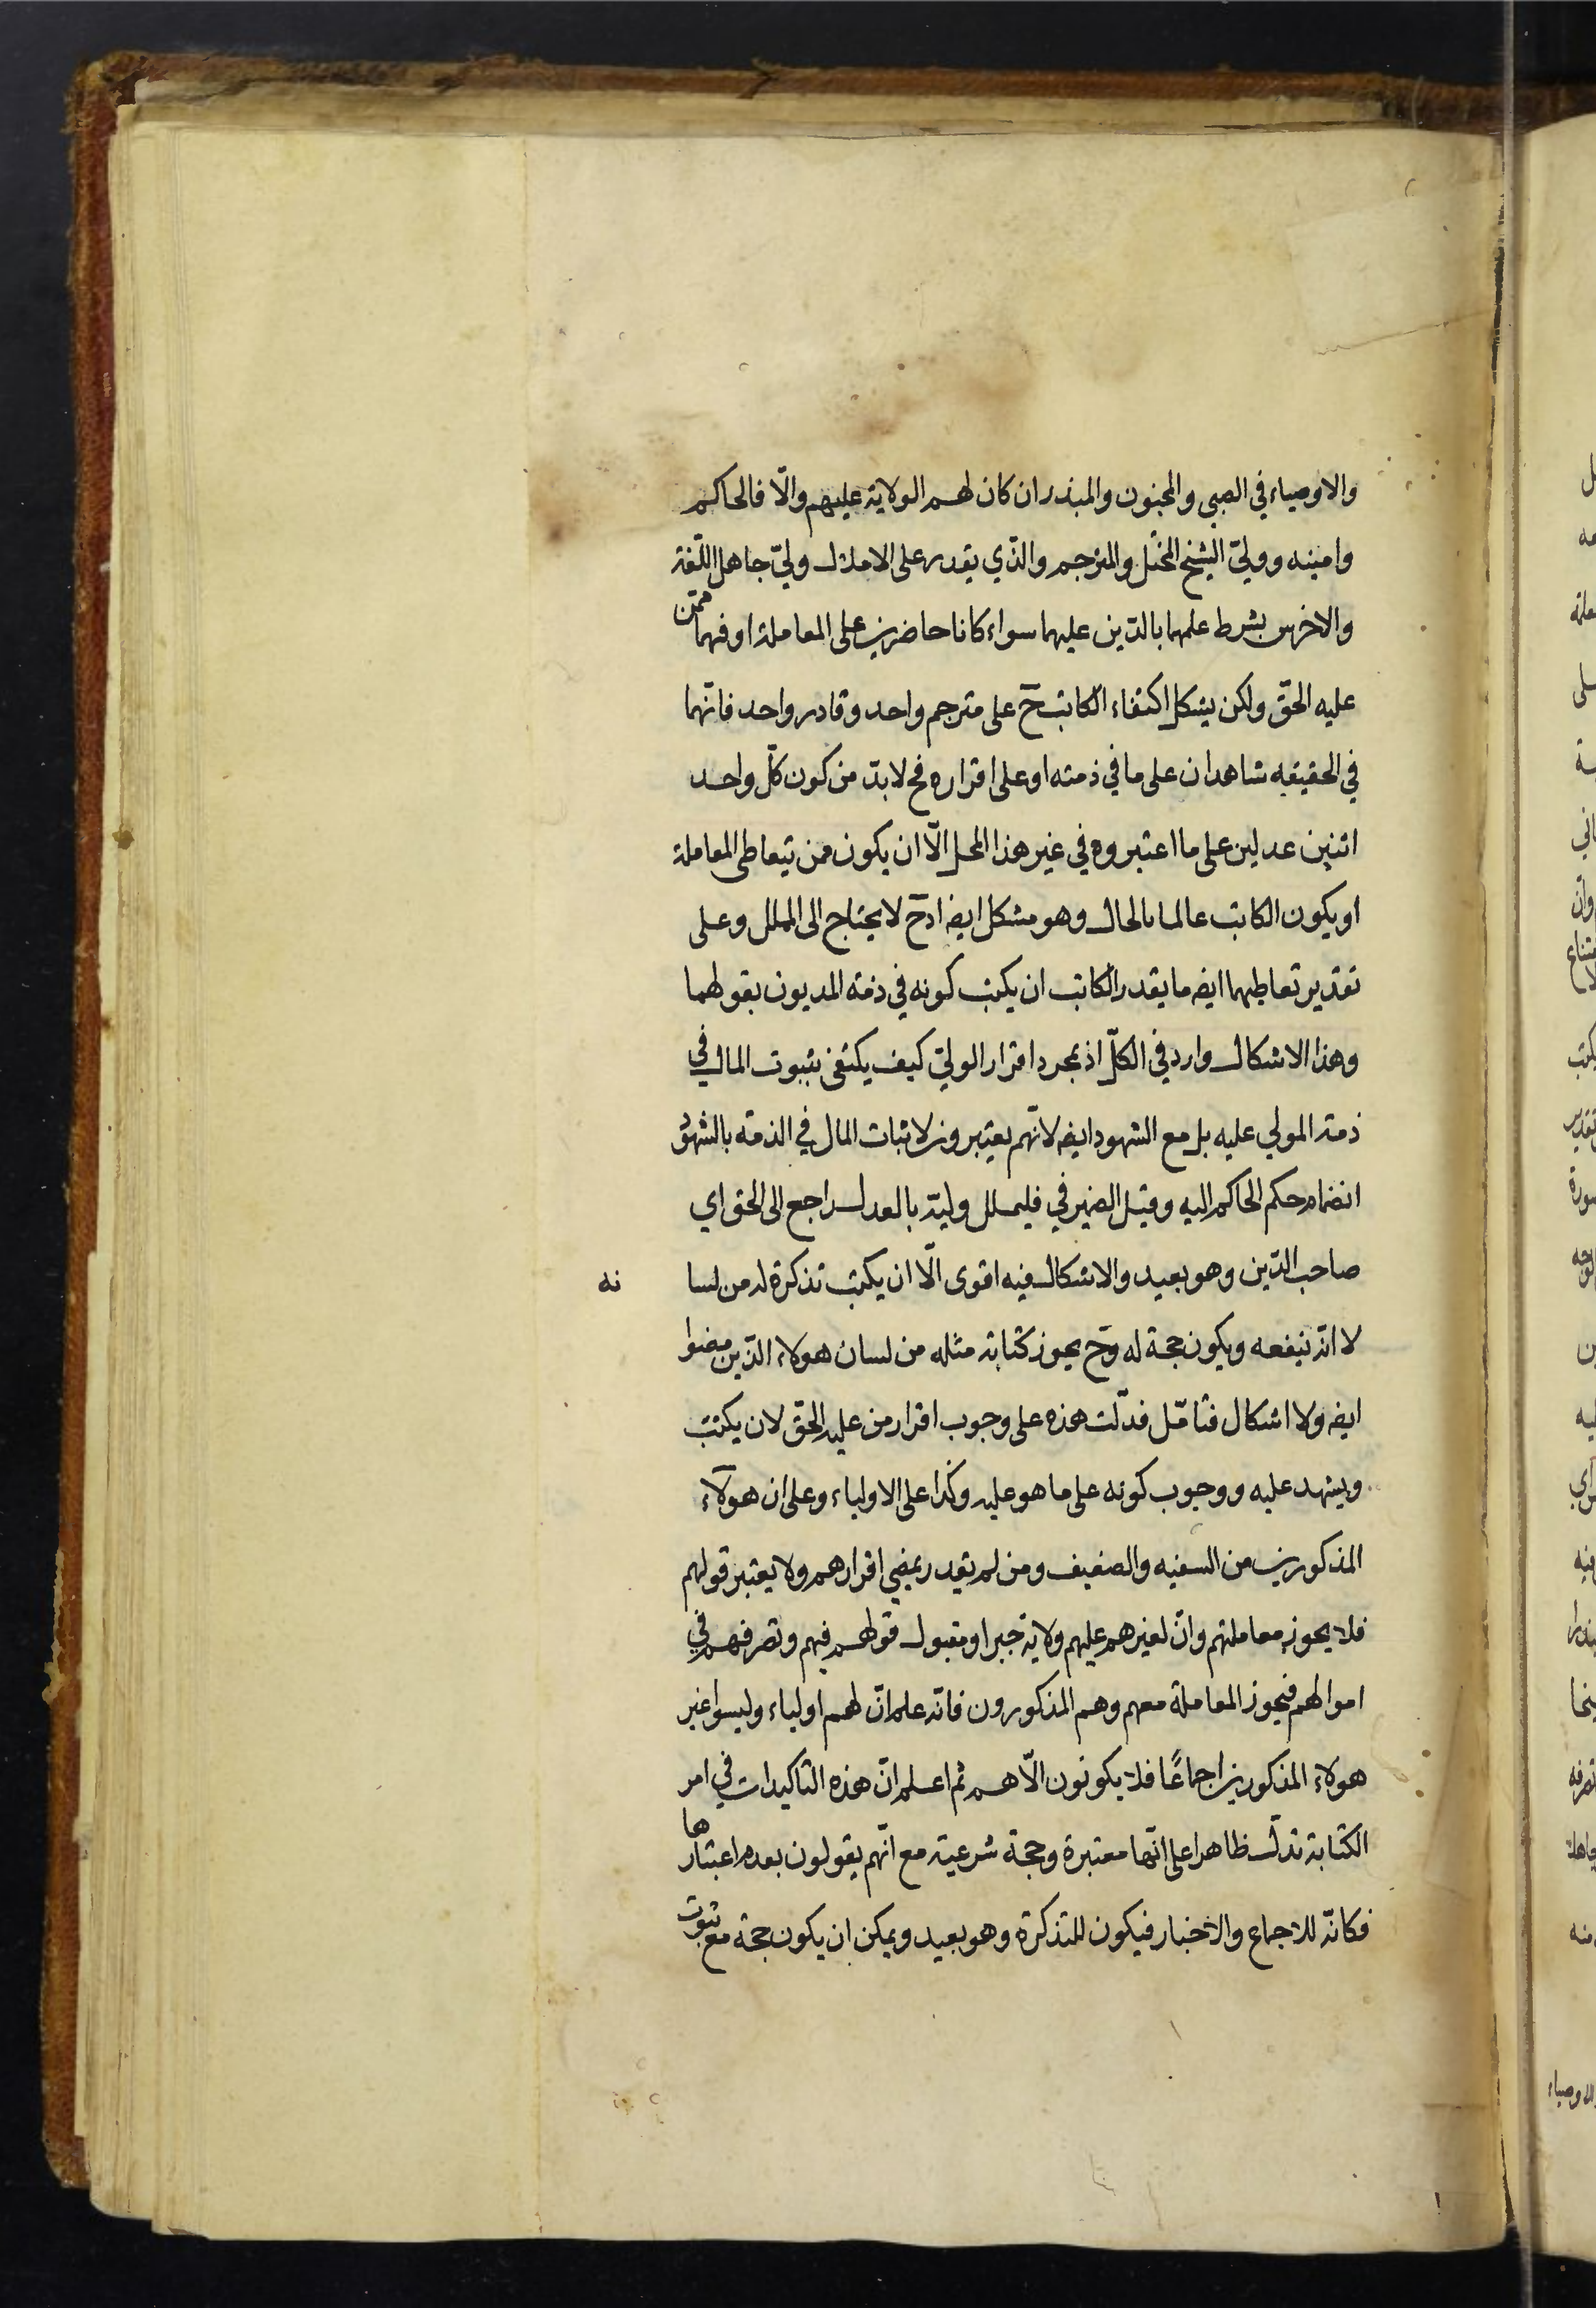 والاوصياء في الصبي والمجنون والمبذر ان كان لهم الولاية عليهم والّا فالحاكم
وامينه وولّي الشيخ المختل والمترجم والذّي يقدر على الاملال ولّي جاهل اللّغة
والاخرس بشرط علمهما بالدّين عليهما سواء كانا حاضرين على المعاملة او فهما ممّن
عليه الحقّ ولكن يشكل اكتفاء الكاتب ح على مترجم واحد وقادر واحد فانّهما
في الحقيقه شاهدان على ما في ذمته او على اقراره فح لابدّ من كون كلّ واحد
اثنين عدلين على ما اعتبروه في غير هذا المحل الّا ان يكون ممن يتعاطى المعاملة
او يكون الكاتب عالما بالحال وهو مشكل ايضا اذ ح لا يحتاج الى المملل وعلى
تقدير تعاطيهما ايضا ما يقدر الكاتب ان يكتب كونه في ذمّة المديون بقولهما
وهذا الاشكال وارد في الكلّ اذ بمجرد اقرار الولّي كيف يكتفى بثبوت المال في
ذمة المولي عليه بل مع الشهود ايضا لانّهم يعتبرون لاثبات المال في الذمّه بالشهود
انضمام حكم الحاكم اليه وقيل الضمير في فليملل وليّه بالعدل راجع الى الحق اي
صاحب الدّين وهو بعيد والاشكال فيه اقوى الّا ان يكتب تذكرة له من لسا نه
لا انّه ينفعه ويكون حجة له وح يجوز كتابة مثله من لسان هولاء الذّين مضوا
ايضا ولا اشكال فتامّل فدلّت هذه على وجوب اقرار من عليه الحقّ لان يكتب
ويشهد عليه ووجوب كونه على ما هو عليه وكذا على الاولياء وعلى ان هولآء
المذكورين من السفيه والضعيف ومن لم يقدر يمضي اقرارهم ولا يعتبر قولهم
فلا يجوز معاملتهم وانّ لغيرهم عليهم ولاية جبرا ومقبول قولهم فيهم وتصرفهم في
اموالهم فيجوز المعاملة معهم وهم المذكورون فانّه علم انّ لهم اولياء وليسوا غير
هولاء المذكورين اجماعًا فلا يكونون الّا هم ثم اعلم انّ هذه التاكيدات في امر
الكتابة تدلّ ظاهرا على انّها معتبرة وحجة شرعية مع انّهم يقولون بعدم اعتبارها
فكانّه للاجماع والاخبار فيكون للتذكرة وهو بعيد ويمكن ان يكون حجة مع ثبوت